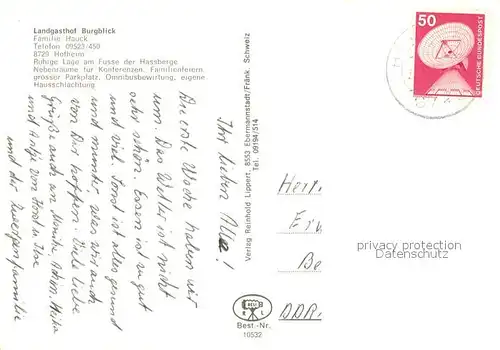 Landgasthof Burgblick
Familie Hauck
Telefon 09523/450
8729 Hofheim
Ruhige Lage am Fusse der Hassberge
Nebenräume für Konferenzen, Familienfeiern
grosser Parkplatz, Omnibusbewirtung, eigene
Hausschlachtung
50
DEUTSCHE BUNDESPOST
Ihr lieben Alle!
Die erste Woche haben wir
um. Das Wetter ist nicht
sehr schön. Essen ist zu gut
und viel. Sonst ist alles gesund
und munter, was wir auch
von Dir hoffen. Viele liebe
Grüße auch an
und Antje von Horst u. Ilse
und der Zwergenfamilie
Verlag Reinhold Lippert, 8553 Ebermannstadt/Fränk. Schweiz
Tel. 09194/514
Herr
Be
DDR
privacy protection
Datenschutz
R L
Best.-Nr.
10532